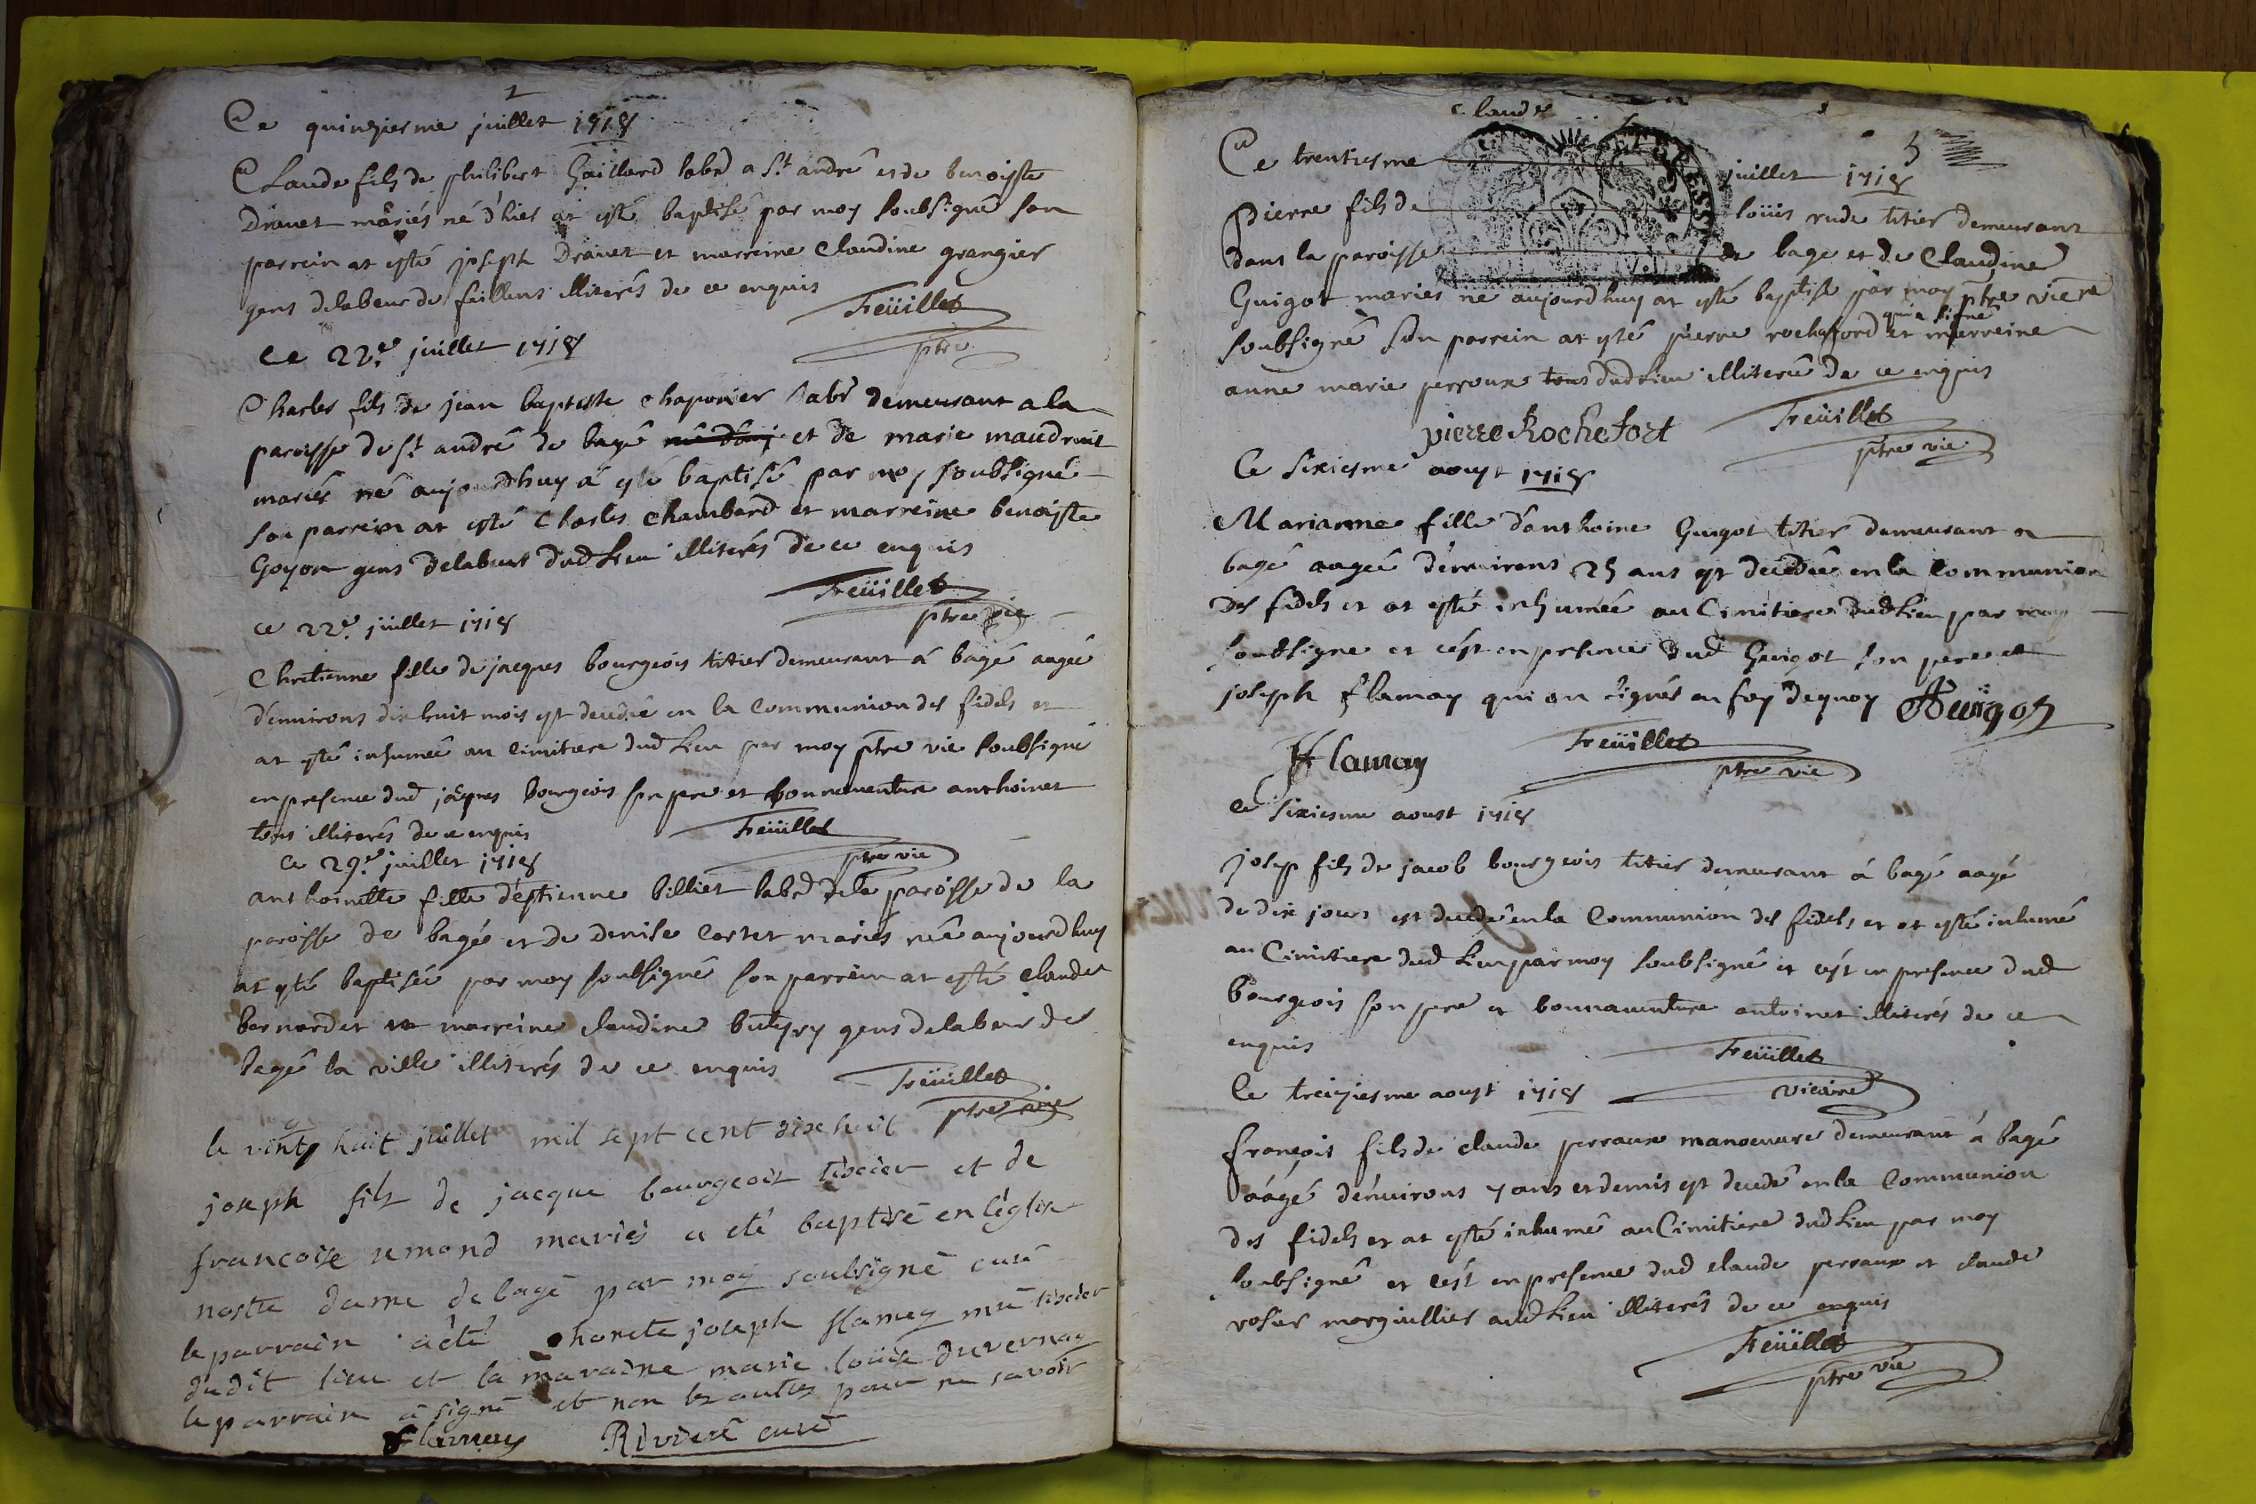 Ce quinziesme juillet 1718
Claude fils de philibert Gaillard labr a St andré et de benoiste
Drevet mariés né d'hier at esté baptisé par moy soubsigné son
parrein at esté joseph Drevet et marreine Claudine grangier
gens delabeur de feillens illiterés de ce enquis
Feüillet
ptre
Ce 22e juillet 1718
Charles fils de jean baptiste chaponier labr demeurant a la
paroisse de St andré de bagé et de marie maudruit
mariés né aujourdhuy á esté baptisé par moy soubsigné
son parrein at esté Charles Chambard et marreine benoiste
Goyon gens delabeur dud Lieu illiterés de ce enquis
Feüillet
ptre vie
Ce 22e juillet 1718
Chretienne fille de jacques bourgeois titier demeurant á bagé aagée
d'environs dix huit mois est decedée en la Communion des fidels et
at esté inhumée au Cimitiere dud Lieu par moy ptre vie soubsigné
en presence dud jacques bourgeois son pere et bonnaventure anthoinet
tous illiterés de ce enquis
Feüillet
ptre vie
Ce 29e juillet 1718
anthoinette fille d'estienne billiet labr dela paroisse de la
paroisse de bagé et de Denise Cartet mariés née aujourdhuy
at esté baptisée par moy soubsigné son parrein at esté Claude
bernardet et marreine Claudine buttyry gens delabeur de
bagé la ville illiterés de ce enquis
Feüillet
ptre vie
le vingt huit juillet mil sept cent dixe huit
joseph fils de jacque bourgeois tissier et de
francoise remond mariés a eté baptisé en léglise
nostre dame de bagé par moy soubsigné curé
le parrain a été honete joseph flamey tissier
dudit lieu et la maraine marie louise duvernay
le parrain a signé et non les autres pour ne savoir
flamey Riviere curé
Claude
5
Ce trentiesme juillet 1718
Pierre fils de loüis rude titier demeurant
dans la paroisse de bage et de Claudine
Guigot mariés né aujourdhuy at esté baptisé par moy ptre viere
soubsigné son parrein at esté pierre rocheford qui a signé et merreine
anne marie perroux dud Lieu illiterée de ce enquis
pierre Rochefort
Feüillet
ptre vie
Ce sixiesme aoust 1718
Marianne fille d'anthoine Guigot titier demeurant a
bagé aagée d'environs 25 ans est decedée en la Communion
des fidels et at esté inhumée au Cimitiere dud Lieu par moy
soubsigné et cést en presence dud Guigot son pere et
joseph flamay qui on signés en foy dequoy AGuigot
J flamay
Feüillet
ptre vie
Ce sixiesme aoust 1718
josep fils de jacob bourgeois titier demeurant á bagé aagé
de dix jours est decedé en la Communion des fidels et at esté inhumé
au Cimitiere dud Lieu par moy soubsigné et cést en presence dud
bourgeois son pere et bonnaventure antoinet illiterés de ce
enquis
Feüillet
vicaire
Ce treiziesme aoust 1718
françois fils de claude perraux manoeuvre demeurant á bagé
aágé d'environs 7 ans et demis est decedé en la Communion
des fidels et at esté inhumé au Cimitiere dud Lieu par moy
soubsigné et cést en presence dud claude perraux et claude
rosier marguillier aud Lieu illiterés de ce enquis
Feüillet
ptre vie